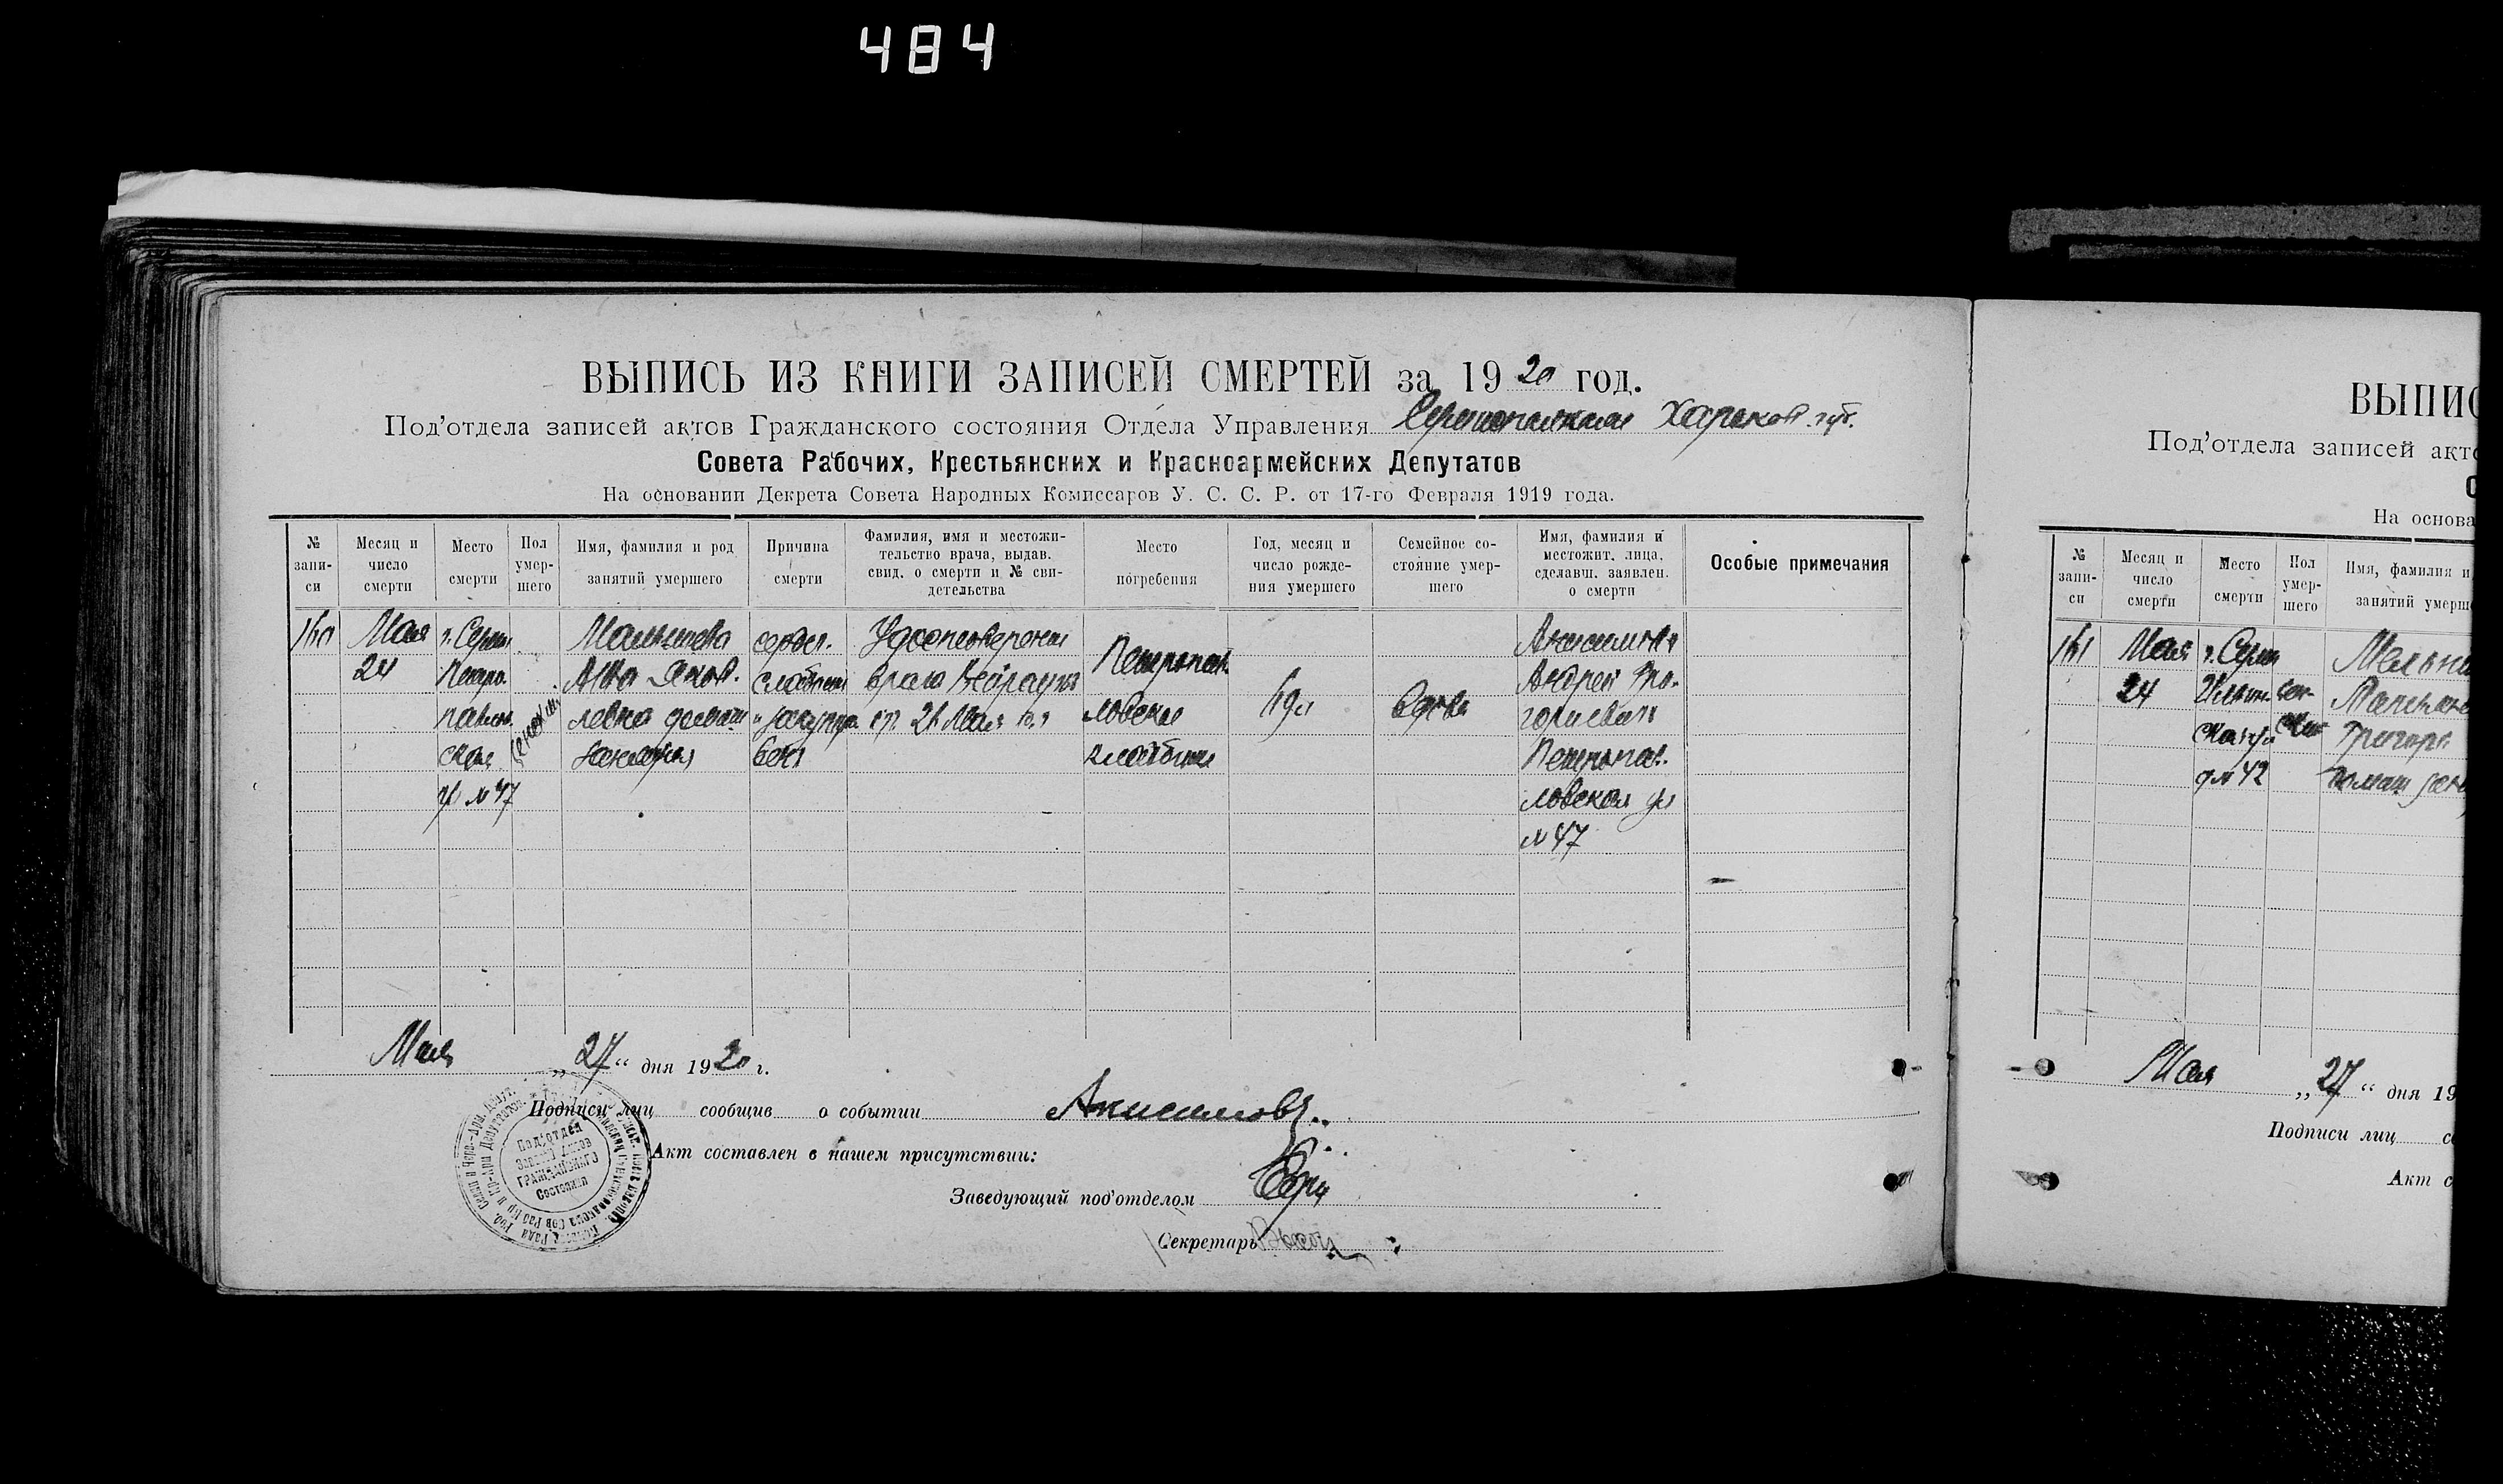 484
ВЫПИСЬ ИЗ КНИГИ ЗАПИСЕЙ СМЕРТЕЙ за 1920 год.
Под'отдела записей актов Гражданского состояния Отдела Управления Харьков. губ.
Совета Рабочих, Крестьянских и Красноармейских Депутатов
На основании Декрета Совета Народных Комиссаров У. С. С. Р. от 17-го Февраля 1919 года.
№ запи-
си
Месяц и
число
смерти
Место
смерти
Пол
умер-
шего
Имя, фамилия и род
занятий умершего
Причина
смерти
Фамилия, имя и местожи-
тельство врача, выдав.
свид. о смерти и № сви-
детельства
Место
погребения
Год, месяц и
число рожде-
ния умершего
Семейное со-
стояние умер-
шего
Имя, фамилия и
местожит. лица,
сделавш. заявлен.
о смерти
Особые примечания
160
Мая
24
г. Серп.
Петро-
павлов.
ская
ул №47
женский
Анна Яков.
левна домаш.
сердеч.
слабость
Удостоверение
врача
Петропав.
ловское
кладбище
вдова
Анисимов
Андрей Гри-
горьевич
Петропав.
ловская ул
№47
Мая „27“ дня 1920 г.
Подписи лиц сообщив о событии Анисимов
Акт составлен в нашем присутствии:
Заведующий под'отделом
Секретарь
Под'отдел
Записи Актов
ГРАЖДАНСКАГО
Состояния
ВЫПИС
Под'отдела записей акто
С
На основа
№
запи-
си
Месяц и
число
смерти
Место
смерти
Пол
умер-
шего
Имя, фамилия и
занятий умерше
161
Мая
24
г. Серп
№42
Мая „27“ дня 19
Подписи лиц с
Акт с